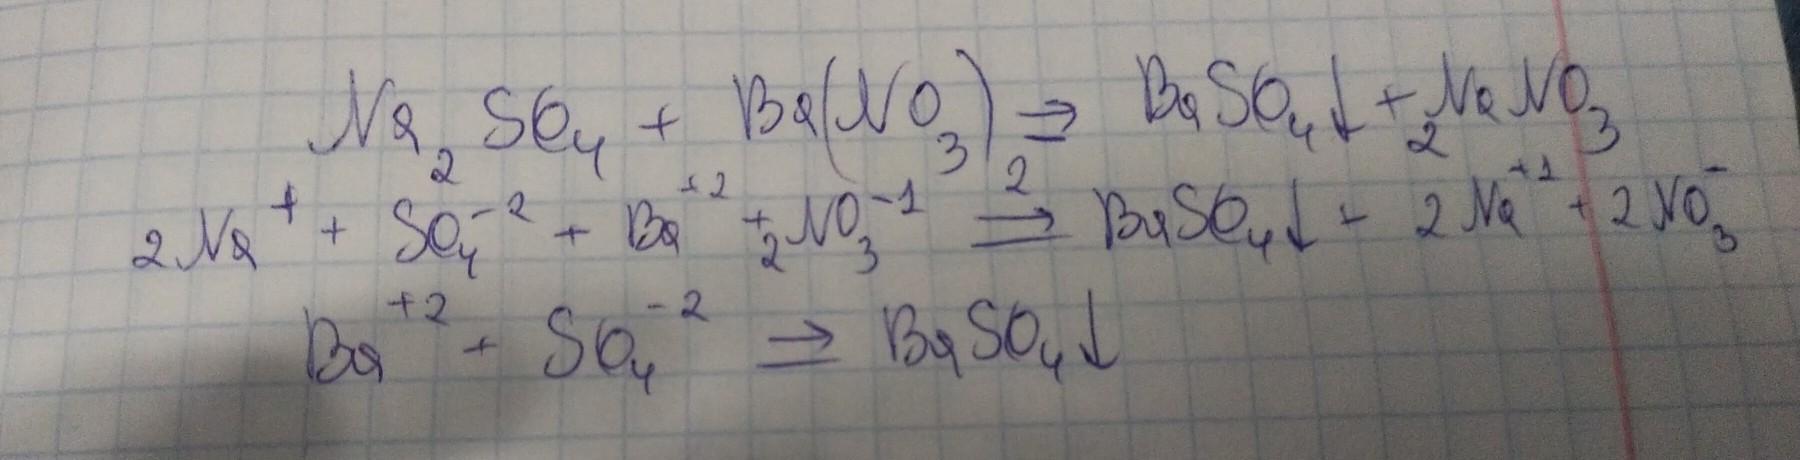 Na₂SO₄ + Ba(NO₃)₂ ⇒ BaSO₄↓ + 2NaNO₃
2Na⁺ + SO₄⁻² + Ba⁺² + 2NO₃⁻¹ ⇒ BaSO₄↓ + 2Na⁺¹ + 2NO₃⁻
Ba⁺² + SO₄⁻² ⇒ BaSO₄↓